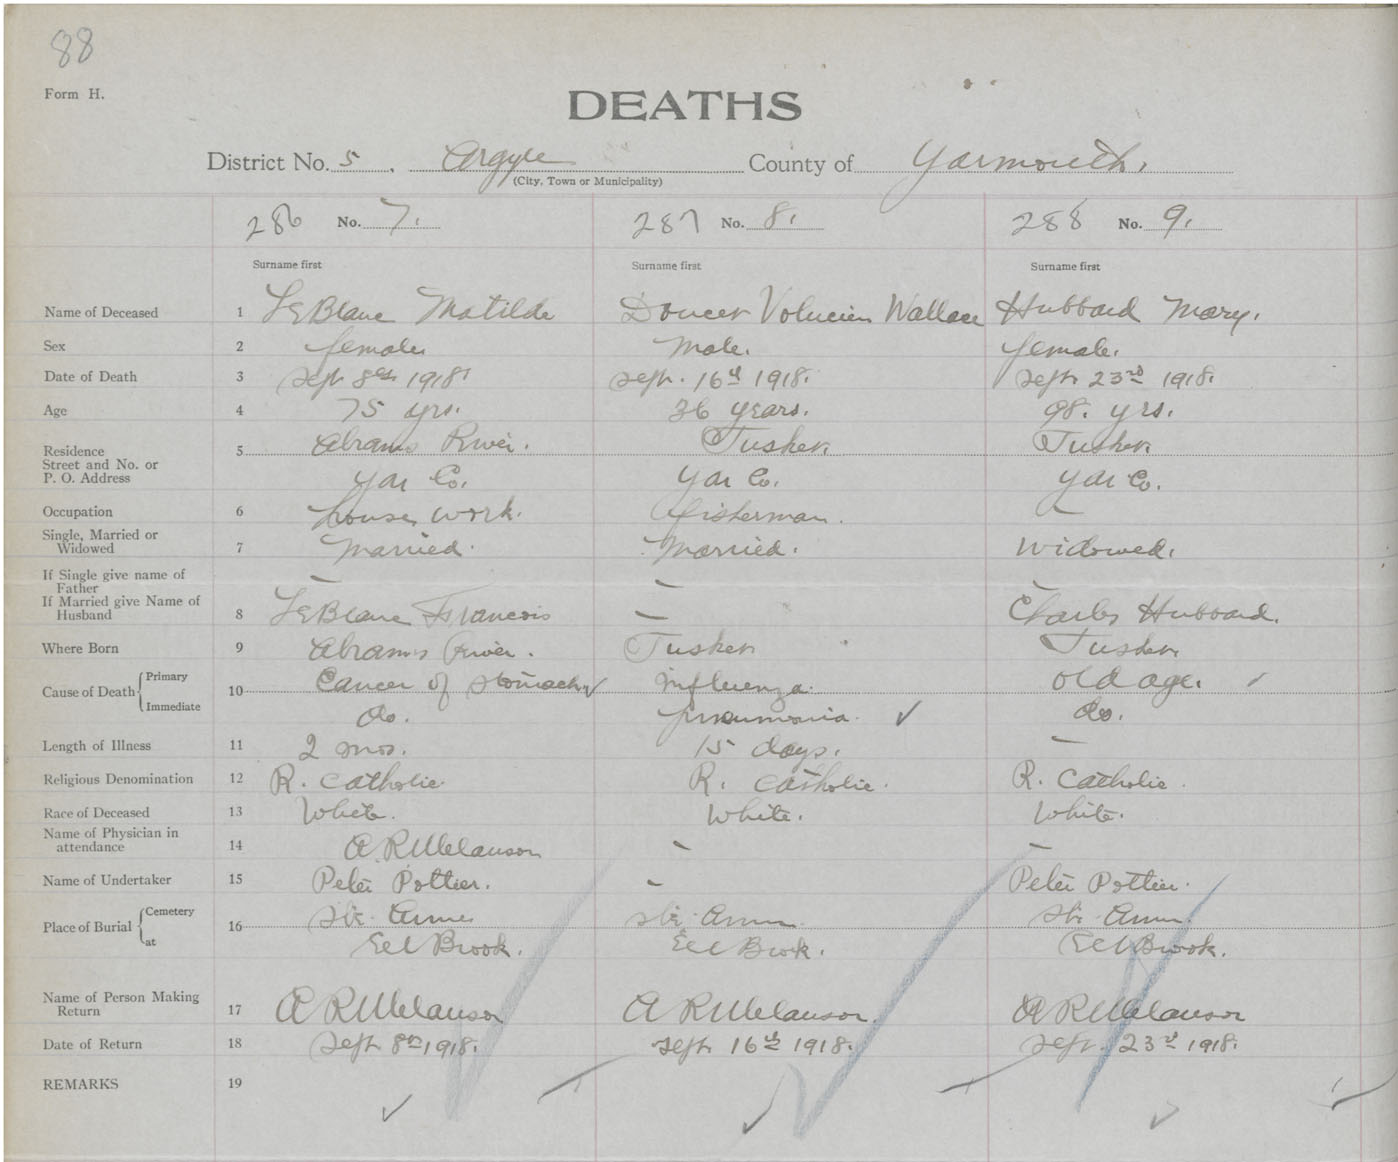 88
Form H.
DEATHS
District No. 5. Argyle County of Yarmouth.
(City, Town or Municipality)
286 No. 7. 287 No. 8. 288 No. 9.
Surname first Surname first Surname first
Name of Deceased 1 LeBlanc Matilde Doucet Volucien Wallace Hubbard Mary.
Sex 2 female Male. female.
Date of Death 3 Sept 8th 1918 Sept. 16th 1918. Sept 23rd 1918.
Age 4 75 yrs. 36 years. 98. yrs.
Residence 5 Abrams River. Tusket. Tusket.
Street and No. or
P. O. Address Yar Co. Yar Co. Yar Co.
Occupation 6 house work. fisherman. -
Single, Married or
Widowed 7 Married. Married. Widowed.
If Single give name of
Father - - -
If Married give Name of
Husband 8 LeBlanc Francois - Charles Hubbard.
Where Born 9 Abrams River. Tusket Tusket
Cause of Death { Primary 10 Cancer of Stomach ✓ Influenza. old age.
Immediate do. pneumonia. ✓ do.
Length of Illness 11 2 mos. 15 days. -
Religious Denomination 12 R. Catholic R. Catholic. R. Catholic.
Race of Deceased 13 White. White. White.
Name of Physician in
attendance 14 A. R Melanson - -
Name of Undertaker 15 Peter Pottier. - Peter Pottier.
Place of Burial { Cemetery 16 Ste. Anne Ste. Anne Ste. Anne
at Eel Brook. Eel Brook. Eel Brook.
Name of Person Making
Return 17 A R Melanson A R Melanson. A R Melanson
Date of Return 18 Sept 8th 1918. Sept 16th 1918. Sept. 23rd 1918.
REMARKS 19